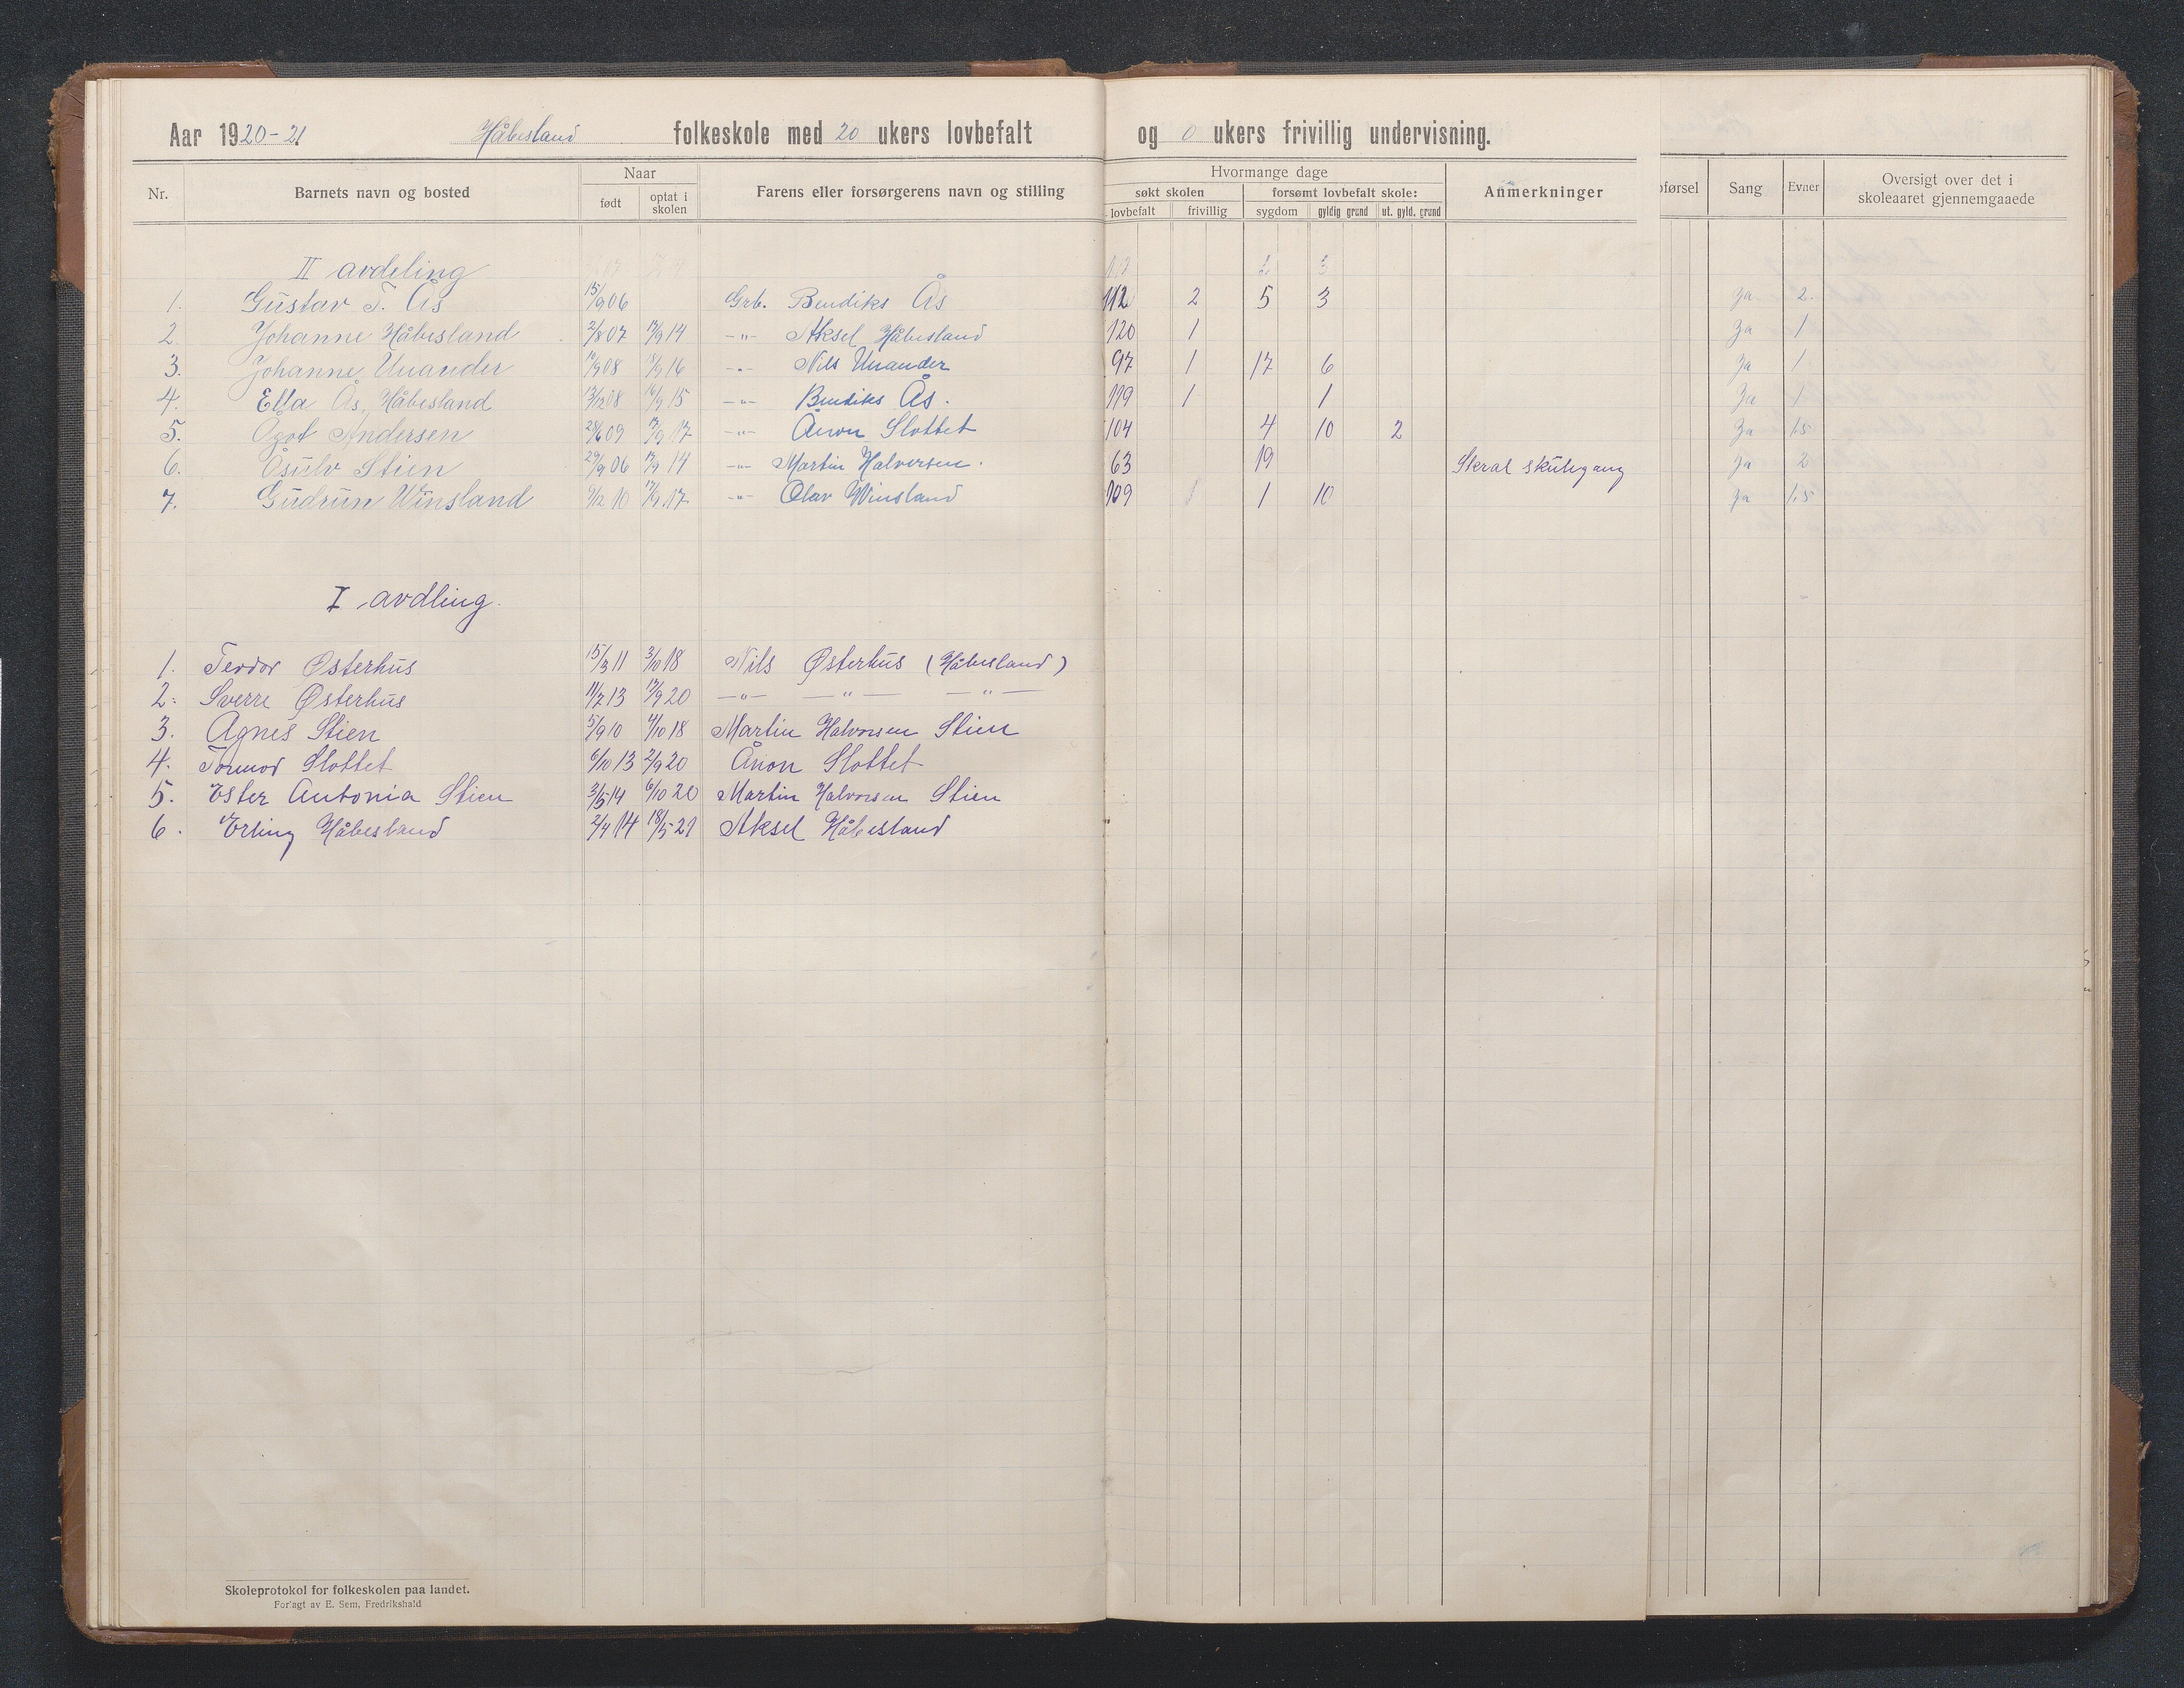 Aar 1920-21. Håbesland folkeskole med 20 ukers lovbefalt og 0 ukers frivillig undervisning.
Nr. Barnets navn og bosted Naar født optat i skolen Farens eller forsørgerens navn og stilling Hvormange dage søkt skolen lovbefalt frivillig forsømt lovbefalt skole: sygdom gyldig grund ut. gyld. grund Anmerkninger førsel Sang Evner Oversigt over det i skoleaaret gjennemgaaede
II avdeling
1. Gustav T. Ås 15/9 06 Grb. Bendiks Ås 112 2 5 3 Ja 2.
2. Johanne Håbesland 2/8 07 17/9 14 -"- Aksel Håbesland 120 1 Ja 1
3. Johanne Unander /9 08 18/9 16 -"- Nils Unander 97 1 17 6 Ja 1
4. Ella Ås, Håbesland 13/12 08 16/9 15 -"- Bendiks Ås. 119 1 1 Ja 1
5. Ågot Andersen 28/6 09 17/9 17 -"- Ånon Slottet 104 4 10 2 Ja 1.5
6. Åsulv Stien 29/9 06 17/9 14 -"- Martin Halversen. 63 19 Skral skulegang Ja 2
7. Gudrun Winsland 9/12 10 17/9 17 -"- Olav Winsland 109 1 1 10 Ja 1,5
I avdling.
1. Teodor Østerhus 15/3 11 3/10 18 Nils Østerhus (Håbesland)
2. Sverre Østerhus 11/7 13 17/9 20 -"- -"- -"-
3. Agnes Stien 5/9 10 4/10 18 Martin Halvorsen Stien
4. Tormod Slottet 6/10 13 2/9 20 Ånon Slottet
5. Ester Antonia Stien 3/5 14 6/10 20 Martin Halvorsen Stien
6. Erling Håbesland 2/4 14 18/5 21 Aksel Håbesland
Skoleprotokol for folkeskolen paa landet.
Forlagt av E. Sem, Fredrikshald